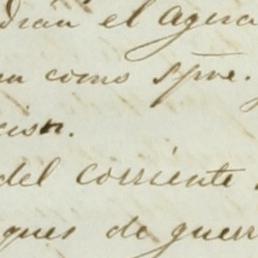 drían el agua
an como spre.
cion.
del corriente
ques de guerr